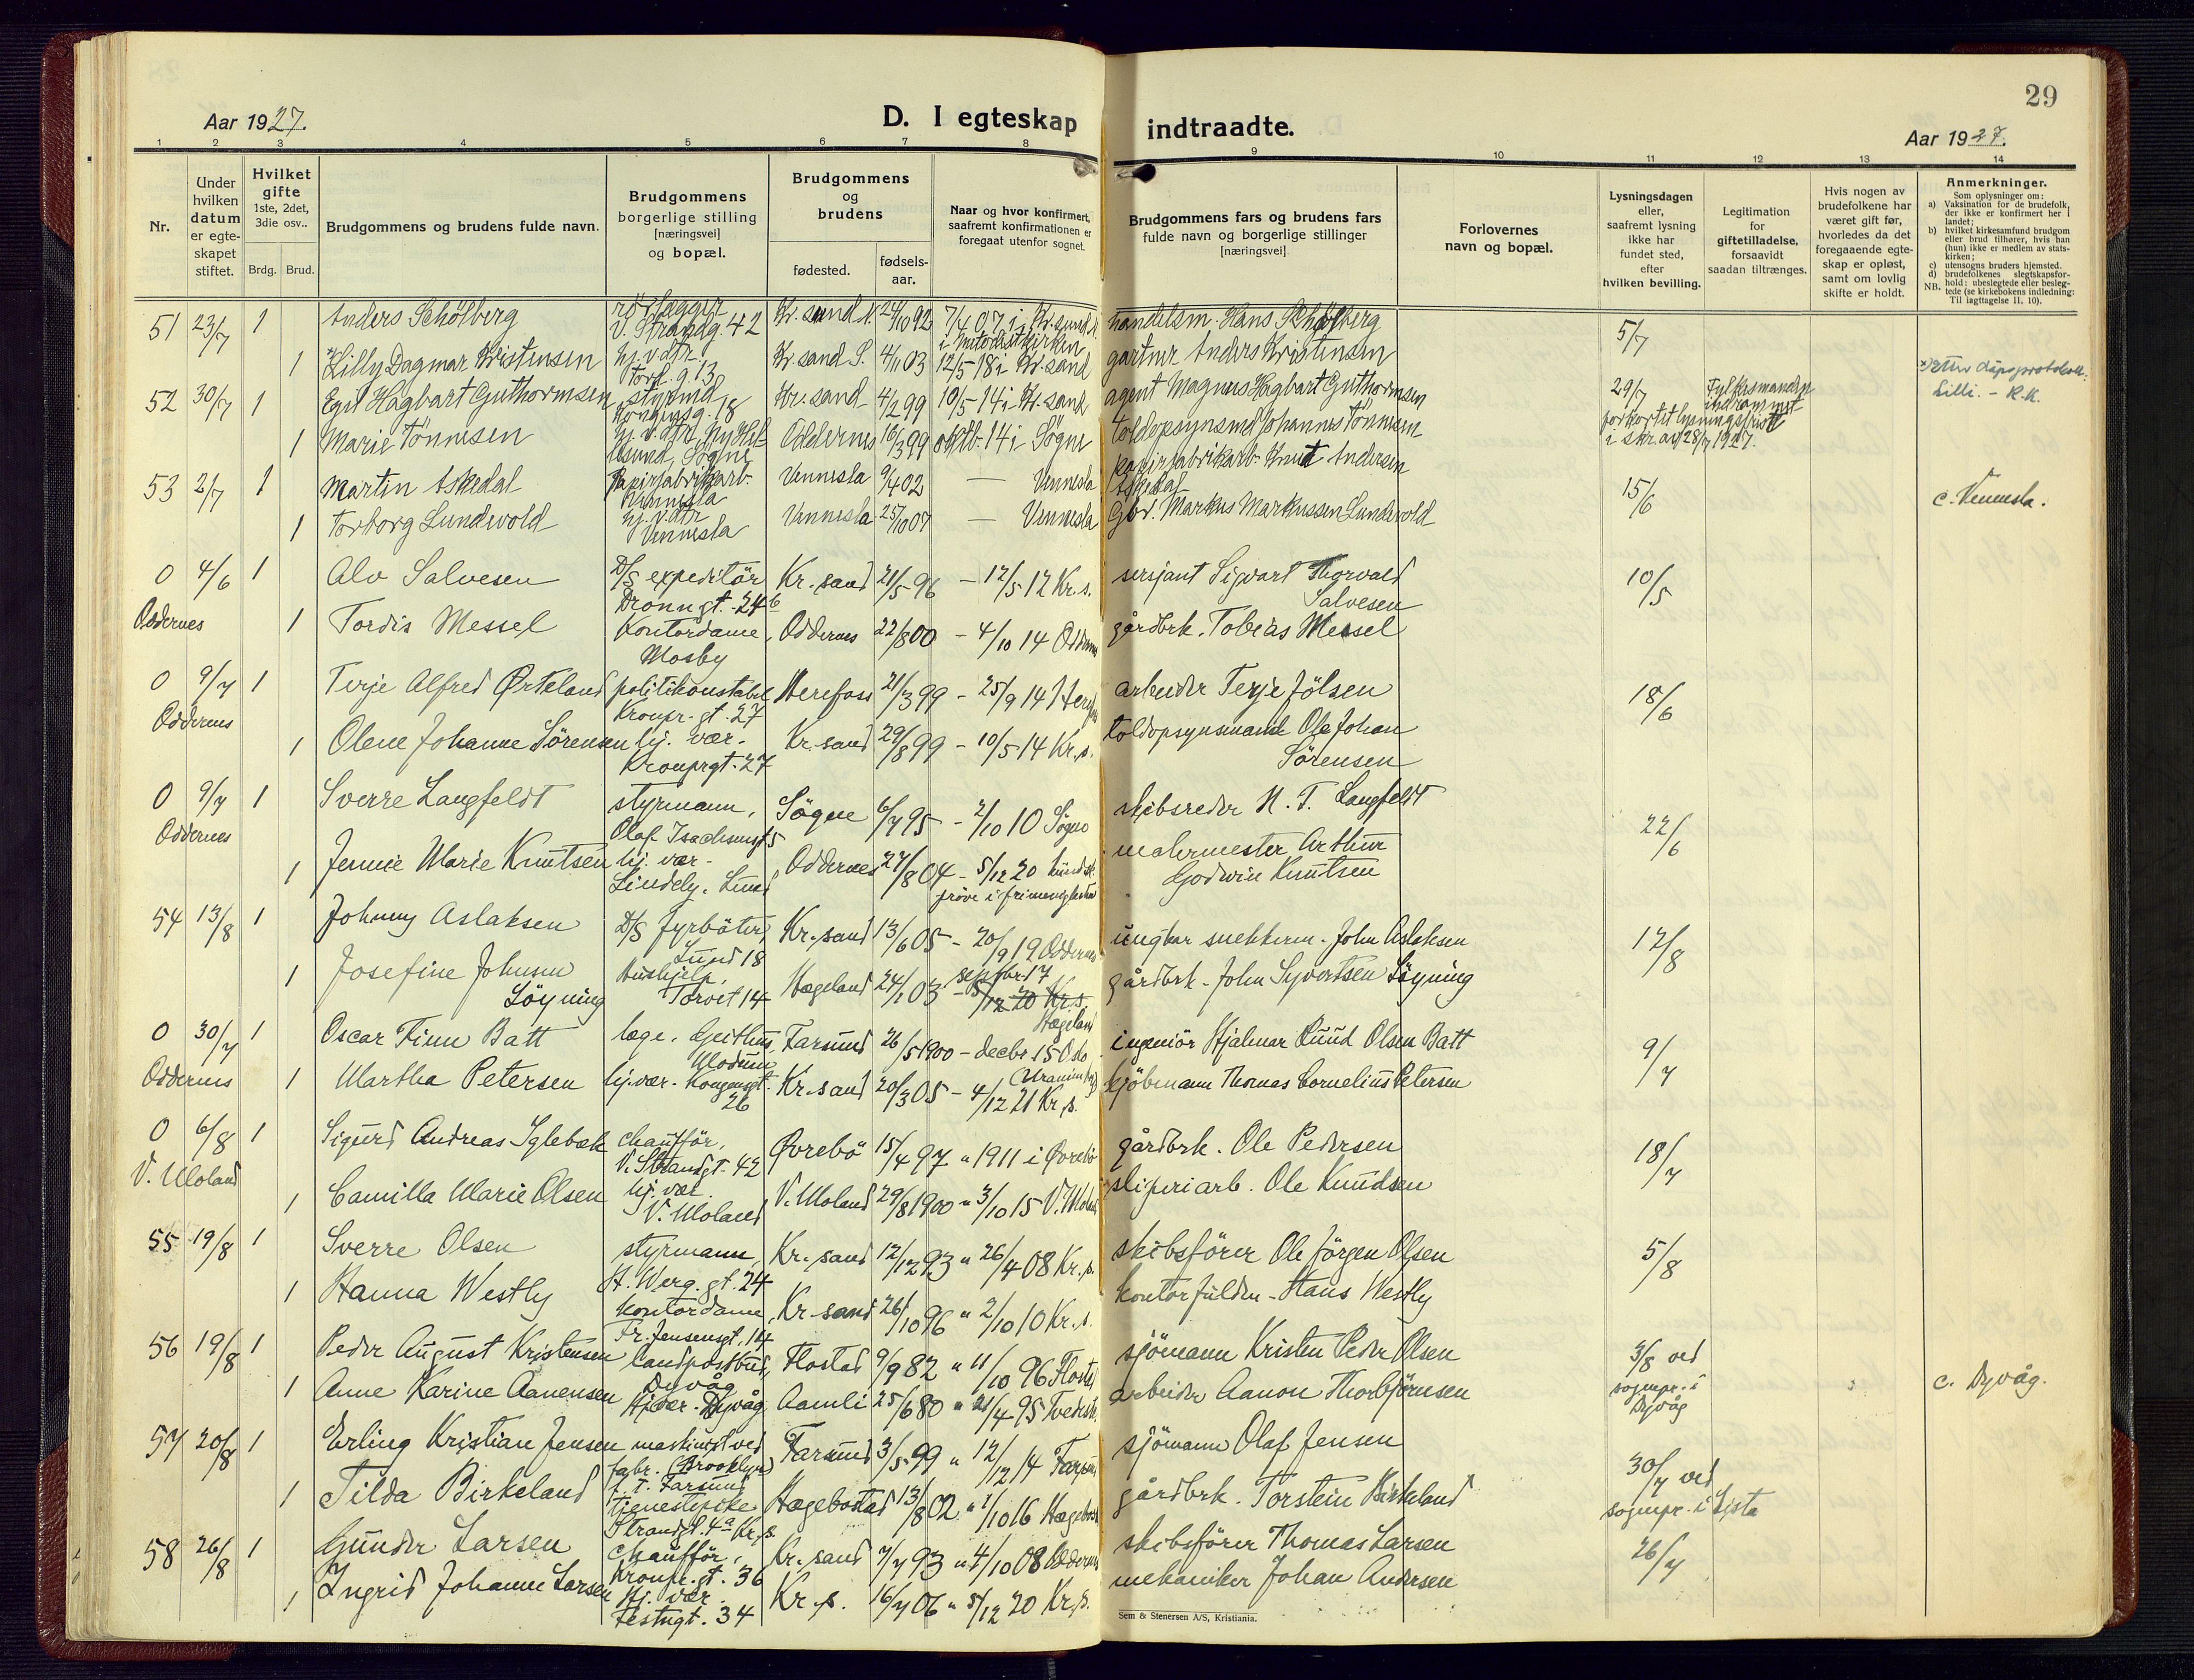 29
Aar 1927.
D. I egteskap indtraadte.
Aar 1927.
1 2 3 4 5 6 7 8 9 10 11 12 13 14
Nr.
Under hvilken datum er egteskapet stiftet.
Hvilket gifte 1ste, 2det, 3die osv..
Brdg. Brud.
Brudgommens og brudens fulde navn.
Brudgommens borgerlige stilling [næringsvei] og bopæl.
Brudgommens og brudens
fødested.
fødsels-aar.
Naar og hvor konfirmert, saafremt konfirmationen er foregaat utenfor sognet.
Brudgommens fars og brudens fars fulde navn og borgerlige stillinger [næringsvei]
Forlovernes navn og bopæl.
Lysningsdagen eller, saafremt lysning ikke har fundet sted, efter hvilken bevilling.
Legitimation for giftetilladelse, forsaavidt saadan tiltrænges.
Hvis nogen av brudefolkene har været gift før, hvorledes da det foregaaende egteskap er opløst, samt om lovlig skifte er holdt.
Anmerkninger.
Som oplysninger om:
a) Vaksination for de brudefolk, der ikke er konfirmert her i landet;
b) hvilket kirkesamfund brudgom eller brud tilhører, hvis han (hun) ikke er medlem av statskirken;
c) utensogns bruders hjemsted.
d) brudefolkenes slegtskapsforhold: ubeslegtede eller beslegtede (se kirkebokens indledning:
NB. Til iagttagelse II. 10).
51 23/7 1 Anders Schölberg rörlægger V. Strandg. 42 Kr.sund N. 24/10 92 7/4 07 i Kr.sund N. i Metodistkirken handelsm. Hans Schölberg 5/7
1 Lilly Dagmar Kristensen hj.v.dtr. Torf. g. 13 Kr.sand S. 4/1 03 12/5-18 i Kr.sand gartner Anders Kristensen
Lilli. - R.K.
52 30/7 1 Egil Hagbart Guthormsen styrmd Kongensg. 18 Kr.sand 4/2 99 10/5-14 i Kr.sand agent Magnus Hagbart Guthormsen 29/7 Fylkesmanden indrømmet forkortet lysningsfrist i skr. av 28/7 1927.
1 Marie Tönnesen hj.v.dtr. Ny Hellesund, Sögne Oddernes 16/3 99 oktb-14 i Sögne toldopsynsmd Johannes Tönnesen
53 2/7 1 Martin Askedal Papirfabrikarb. Vennesla Vennesla 9/4 02 — Vennesla papirfabrikarb. Knut Andersen Askedal 15/6 c. Vennesla.
1 Torborg Lundevold hj.v.dtr Vennesla Vennesla 25/10 07 — Vennesla Gbr. Markus Markussen Lundevold
0 4/6 1 Alv Salvesen D/S expeditör Dronn gt. 24b Kr.sand 21/5 96 - 12/5 12 Kr.s. sersjant Sigvart Thorvald Salvesen 10/5
Oddernes 1 Tordis Messel Kontordame, Mosby Oddernes 22/8 00 - 4/10 14 Oddernes gårdbrk. Tobias Messel
0 9/7 1 Terje Alfred Ørteland politikonstabel Kronpr. gt. 27 Herefoss 21/3 99 - 25/9 14 Heref. arbeider Terje Jölsen 18/6
Oddernes 1 Olene Johanne Sörensen hj. vær. Kronprgt. 27 Kr.sand 29/8 99 - 10/5 14 Kr.s. toldopsynsmand Ole Johan Sörensen
0 9/7 1 Sverre Langfeldt styrmann, Olaf Isachsensgt 5 Sögne 6/7 95 - 2/10 10 Sögne skibsreder N. T. Langfeldt 22/6
Oddernes 1 Jennie Marie Knutsen hj. vær. Lindely, Lund Oddernes 27/8 04 - 5/12 20 kundsk. pröve i frimenigheten malermester Arthur Godwin Knutsen
54 13/8 1 Johnny Aslaksen D/S fyrböter, Lund 18 Kr.sand 13/6 05 - 20/9 19 Oddernes ungkar snekkerm. John Aslaksen 12/8
1 Josefine Johnsen Löyning Hushjelp, Torvet 14 Hægeland 24/1 03 - septbr. 17 5/12 20 Kr.s. Hægeland gårdbrk. John Syvertsen Löyning
0 30/7 1 Oscar Finn Batt læge, Geithus, Modum Farsund 26/5 1900 - decbr 15 Oslo (Uranienborg) ingeniör Hjalmar Ruud Olsen Batt 9/7
Oddernes 1 Martha Petersen hj.vær. Kongensgt. 26 Kr.sand 20/3 05 - 4/12 21 Kr.s. kjöbmann Thomas Cornelius Petersen
0 6/8 1 Sigurd Andreas Iglebæk chaufför, V. Strandgt. 42 Øvrebö 15/4 97 " 1911 i Øvrebö gårdbrk. Ole Pedersen 18/7
V. Moland 1 Camilla Marie Olsen hj. vær. V. Moland V. Moland 29/8 1900 " 3/10 15 V. Moland sliperiarb. Ole Knudsen
55 19/8 1 Sverre Olsen styrmann, H. Werg. gt. 24 Kr.sand 12/12 93 " 26/4 08 Kr.s. skibsförer Ole Jörgen Olsen 5/8
1 Hanna Westly kontordame, Fr. Jensensgt. 14 Kr.sand 26/10 96 " 2/10 10 Kr.s. kontorfuldm. Hans Westly
56 19/8 1 Peder August Kristensen landpostbud, Dyvåg Flostad 9/9 82 " 11/10 96 Flosta sjömann Kristen Peder Olsen 3/8 ved sognepr. i Dyvåg c. Dyvåg.
1 Anne Karine Aanensen Hj.vær. Dyvåg Aamli 25/6 80 " 21/4 95 Tvedestr. arbeider Aanon Thorbjörnsen
57 20/8 1 Erling Kristian Jensen maskinist ved fabr. (Brooklyn) p. t. Farsund Farsund 3/5 99 " 12/12 14 Farsund sjömann Olaf Jensen 30/7 ved sognepr. i Lista
1 Tilda Birkeland tjenestepike Strandgt. 4a Kr.s. Hægebostad 13/8 02 " 1/10 16 Hægebost gårdbrk. Torstein Birkeland
58 26/8 1 Gunder Larsen chaufför, Kronpr. gt. 36 Kr.sand 7/7 93 " 4/10 08 Oddernes skibsförer Thomas Larsen 26/7
1 Ingrid Johanne Larsen Hj. vær. Festngt. 34 Kr.s. 16/7 06 " 5/12 20 Kr.s. mekaniker Johan Andersen
Sem & Stenersen A/S, Kristiania.